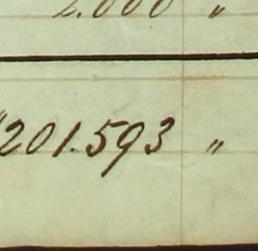 2.000 "
201.593 "